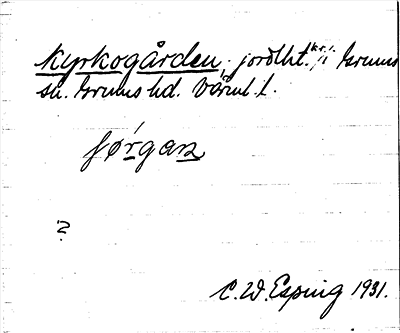 Kyrkogården, jordlht. kr. i Grums
sn. Grums hd. Värml. l.
ʃørgan
?
C.W. Esping 1931.